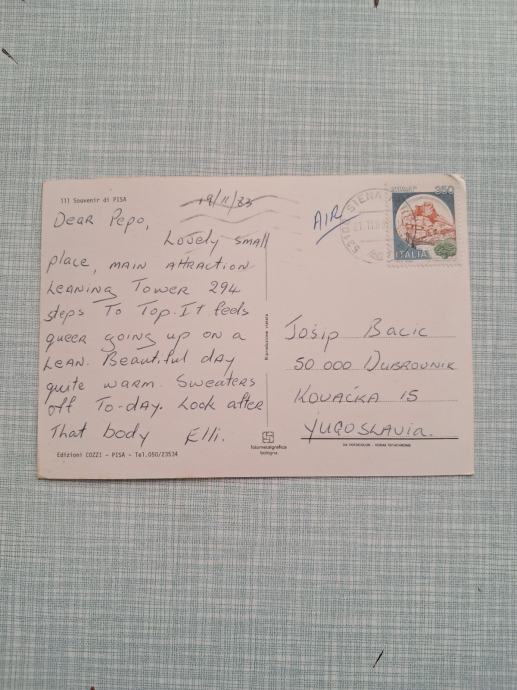 111 Souvenir di PISA
19/11/83
Dear Pepo,
Lovely small
place, main attraction
Leaning Tower 294
steps To Top. It feels
queer going up on a
Lean. Beautiful day
quite warm. Sweaters
off To-day. Look after
That body Elli.
Edizioni COZZI - PISA - Tel.050/23534
Riproduzione vietata
fotometalgrafica
bologna
AIR
350
ITALIA
Jošip Bacic
50 000 Dubrovnik
Kovačka 15
Yugoslavia.